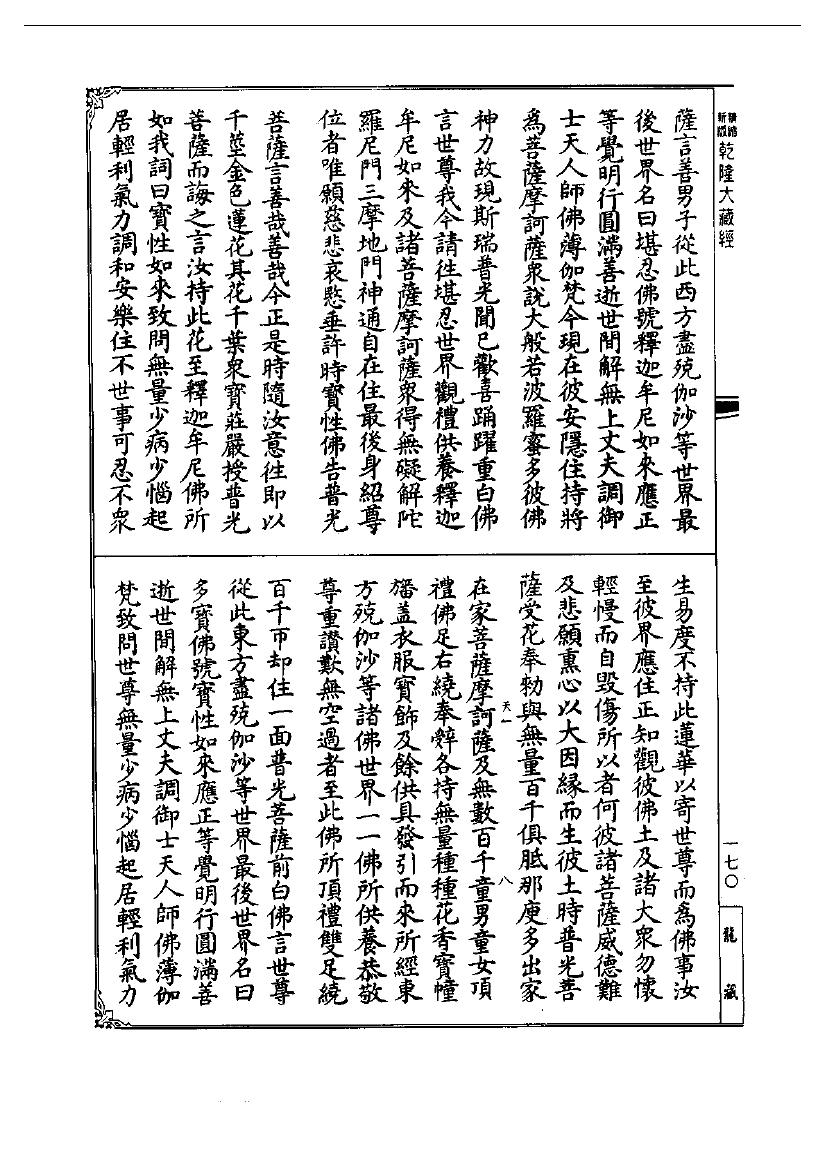 新編縮版 乾隆大藏經
薩言善男子從此西方盡殑伽沙等世界最
後世界名曰堪忍佛號釋迦牟尼如來應正
等覺明行圓滿善逝世間解無上丈夫調御
士天人師佛薄伽梵今現在彼安隱住持將
爲菩薩摩訶薩衆說大般若波羅蜜多彼佛
神力故現斯瑞普光聞已歡喜踊躍重白佛
言世尊我今請往堪忍世界觀禮供養釋迦
牟尼如來及諸菩薩摩訶薩衆得無礙解陀
羅尼門三摩地門神通自在住最後身紹尊
位者唯願慈悲哀愍垂許時寶性佛告普光
菩薩言善哉善哉今正是時隨汝意往即以
千莖金色蓮花其花千葉衆寶莊嚴授普光
菩薩而誨之言汝持此花至釋迦牟尼佛所
如我詞曰寶性如來致問無量少病少惱起
居輕利氣力調和安樂住不世事可忍不衆
生易度不持此蓮華以寄世尊而爲佛事汝
至彼界應住正知觀彼佛土及諸大衆勿懷
輕慢而自毀傷所以者何彼諸菩薩威德難
及悲願熏心以大因緣而生彼土時普光菩
薩受花奉勅與無量百千俱胝那庾多出家
天一
八
在家菩薩摩訶薩及無數百千童男童女頂
禮佛足右繞奉辭各持無量種種花香寶幢
旛蓋衣服寶飾及餘供具發引而來所經東
方殑伽沙等諸佛世界一一佛所供養恭敬
尊重讚歎無空過者至此佛所頂禮雙足繞
百千帀却住一面普光菩薩前白佛言世尊
從此東方盡殑伽沙等世界最後世界名曰
多寶佛號寶性如來應正等覺明行圓滿善
逝世間解無上丈夫調御士天人師佛薄伽
梵致問世尊無量少病少惱起居輕利氣力
一七〇
龍藏